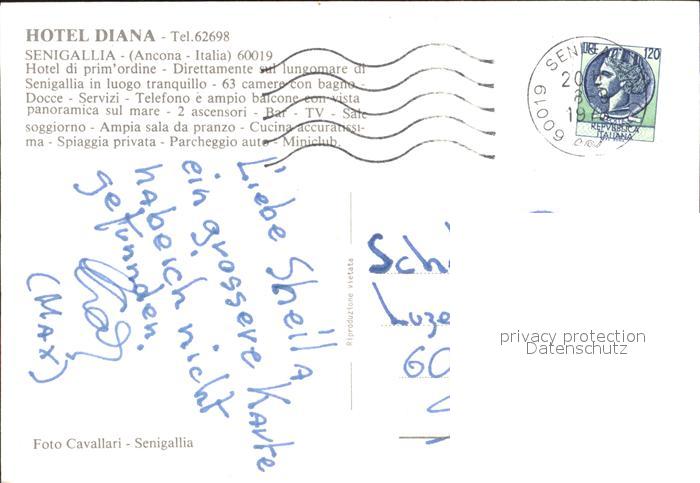 HOTEL DIANA - Tel.62698
SENIGALLIA - (Ancona - Italia) 60019
Hotel di prim'ordine - Direttamente sul lungomare di
Senigallia in luogo tranquillo - 63 camere con bagno -
Docce - Servizi - Telefono e ampio balcone con vista
panoramica sul mare - 2 ascensori - Bar - TV - Sale
soggiorno - Ampia sala da pranzo - Cucina accuratissi-
ma - Spiaggia privata - Parcheggio auto - Miniclub.
60019 SENI
LIRE 120
REPVBBLICA
ITALIANA
Liebe Sheilla
ein grossere Karte
habe ich nicht
gefunnden.
(MAX)
Riproduzione vietata
Sch
Luze
60
privacy protection
Datenschutz
Foto Cavallari - Senigallia